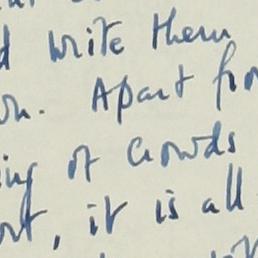 d write them
on. Apart fro
ing of crowds
out, it is all